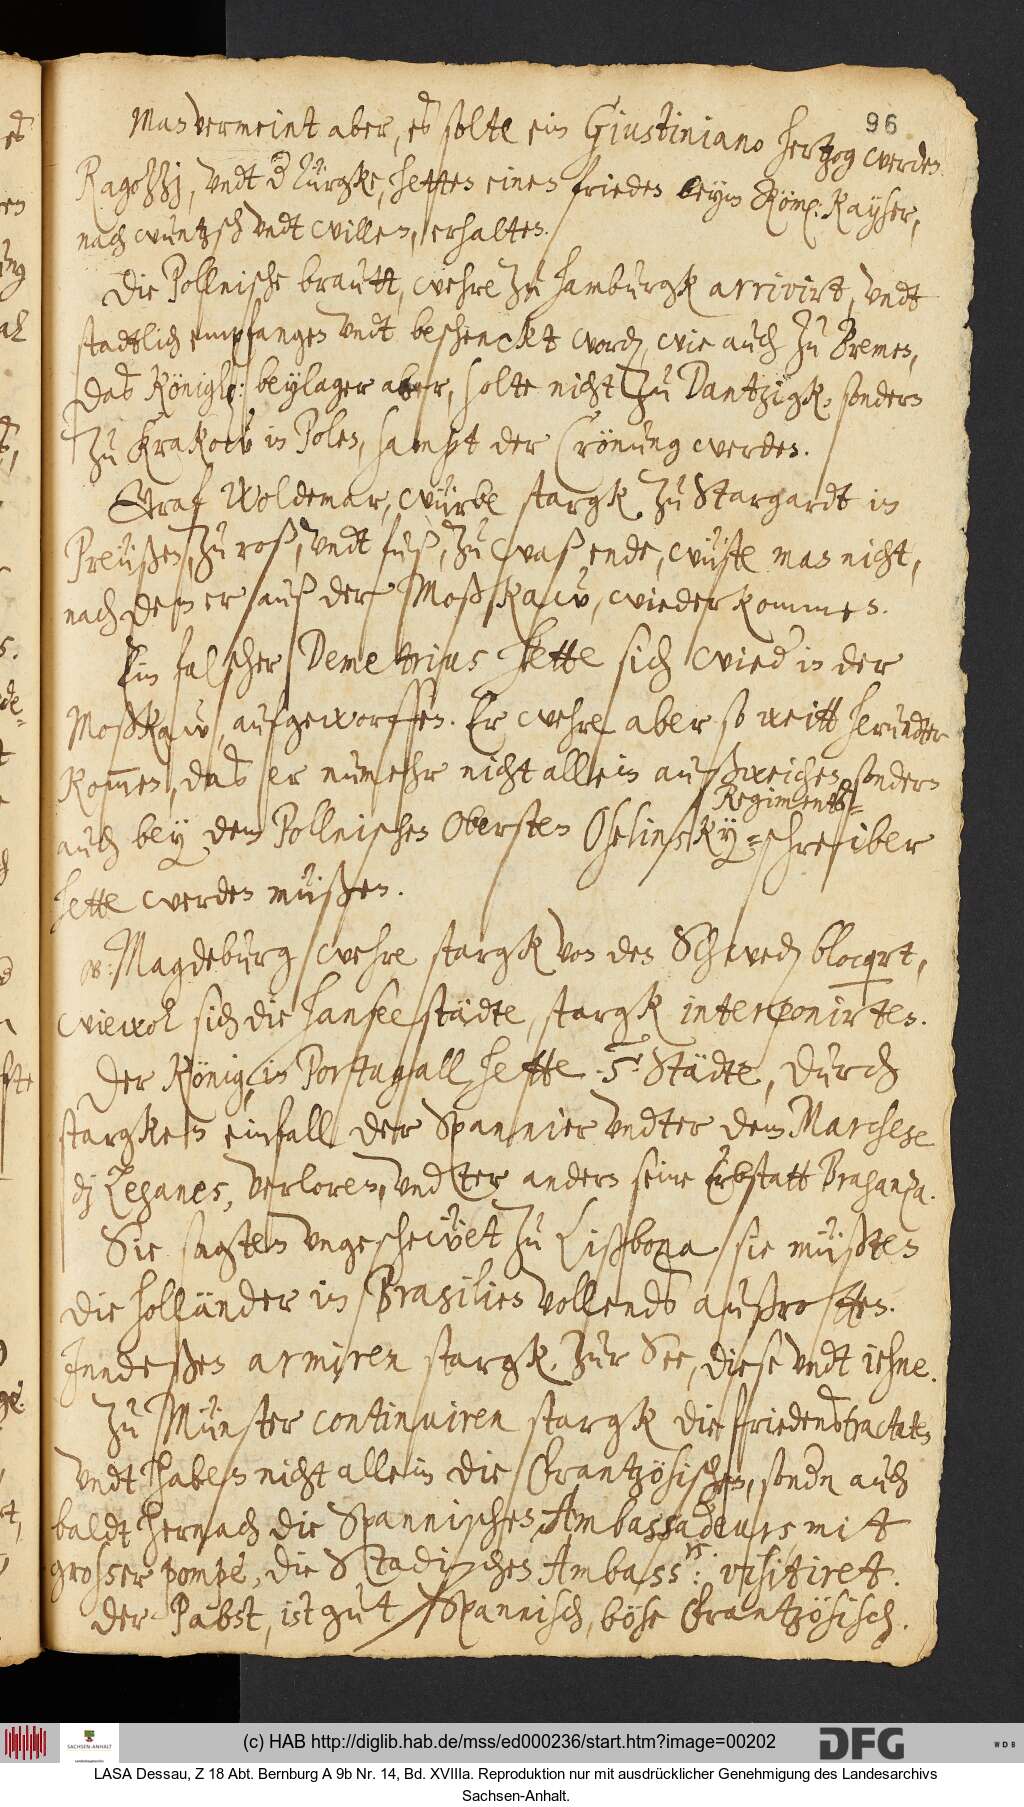 96
Man vermeint aber, es solte ein Giustiniano hertzog werden
Ragozzj, vndt d Türgke, hetten einen frieden beym Röm. Kayser,
nach wuntzsch vndt willen, erhalten.
Die Pollnische brautt, wehre zu hamburgk arrivirt, vndt
stadtlich empfangen vndt beschenckt word, wie auch zu Bremen,
das Königl: beylager aber, solte nicht zu Dantzigk, sondern
zu Krakow in Polen, sampt der Crönung werden.
Graf Woldemar, würbe stargk zu Stargardt in
Preüßen, zu roß, vndt fuß, zu waß ende, wüste man nicht,
nach dem er auß der Moßkaw, wieder kommen.
Ein falscher Demetrius hette sich wied in der
Moßkaw, aufgeworffen. Er wehre aber so weitt herundter
kom̄en, das er numehr nicht allein außweichen, sondern
Regiments-
auch bey dem Pollnischen Obersten Oselinsky =schreiber
hette werden müßen.
Magdeburg wehre stargk von den Schwed blocqrt,
wiewol sich die Hanseestädte, stargk interponirten.
Der König in Portugall hette 5 Städte, durch
stargken einfall der Spannier vndter dem Marchese
dj Leganes, verloren, vndter andern seine Erbstatt Braganza.
Sie sagten vngeschewet zu Lißbona sie müßten
die holländer in Brasilien vollends außrotten.
Inndeßen armiren stargk, zur See, diese vndt iehne.
Zu Münster continuiren stargk die friedenstractaten
vndt haben nicht allein die Frantzösischen, sondn auch
baldt hernach die Spannischen Ambassadeurs mit
grosser pompe, die Stadischen Ambass.rs: visitiret.
Der Pabst, ist gut Spannisch, böse Frantzösisch.
(c) HAB http://diglib.hab.de/mss/ed000236/start.htm?image=00202
SACHSEN-ANHALT
DFG
WDB
LASA Dessau, Z 18 Abt. Bernburg A 9b Nr. 14, Bd. XVIIIa. Reproduktion nur mit ausdrücklicher Genehmigung des Landesarchivs
Sachsen-Anhalt.